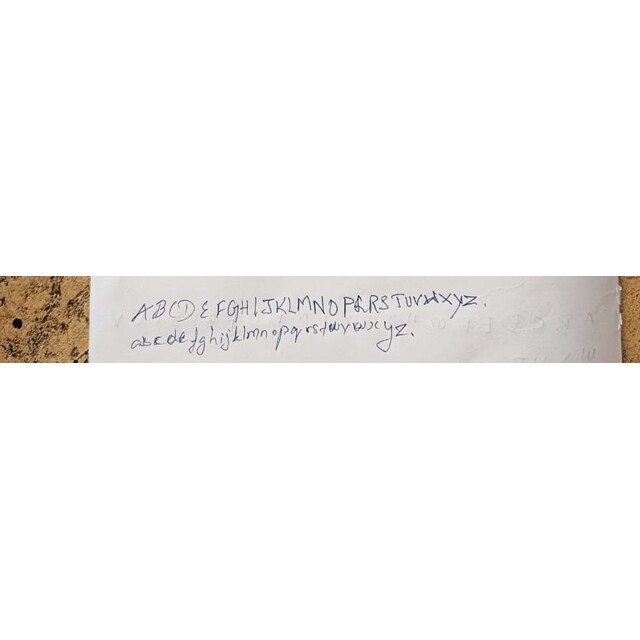 ABCDEFGHIJKLMNOPQRSTUVWXYZ.
abcdefghijklmnopqrstuvwxyz.